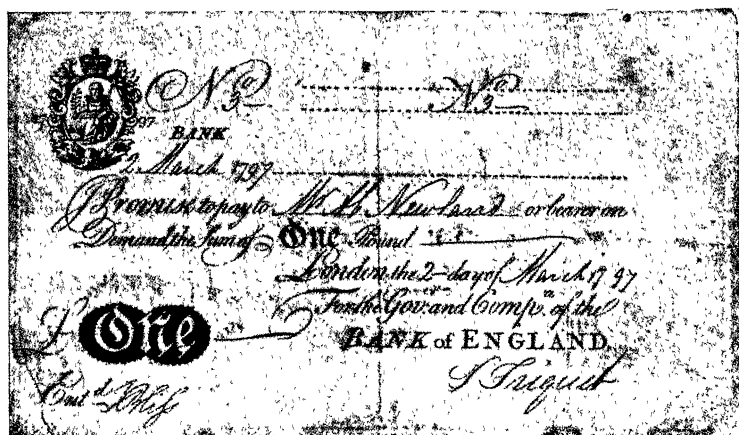 No 3 No 3
BANK
2 March 1797
I Promise to pay to Mr Ab Newland or bearer on
Demand the Sum of One Pound
London the 2 day of March 1797
For the Gov.r and Comp.a of the
£ One BANK of ENGLAND
J Triquet
Ent.d